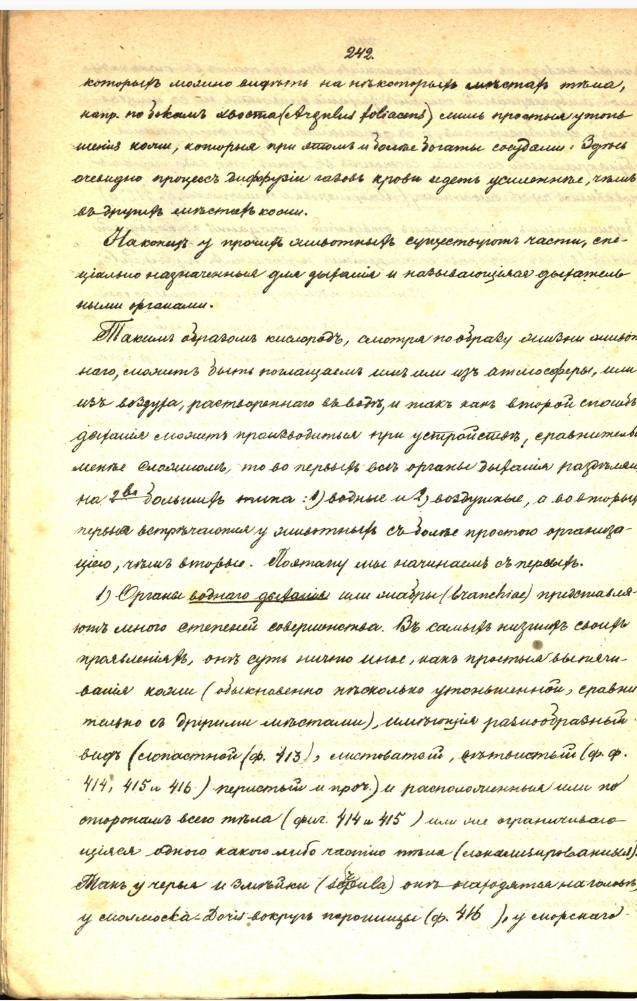 242.
которыхъ можно видѣть на нѣкоторыхъ мѣстахъ тѣла,
напр. по бокамъ хвоста (Argulus foliaceus) лишь простыя утонь
шенія кожи, которыя при этомъ и болѣе богаты сосудами. Здѣсь
очевидно процессъ диффузіи газовъ крови идетъ усиленнѣе, чѣмъ
въ другихъ мѣстахъ кожи.
Наконецъ у прочихъ животныхъ существуютъ части, спе-
ціально назначенныя для дыханія и называющіяся дыхатель-
ными органами.
Такимъ образомъ кислородъ, смотря по образу жизни живот
наго, можетъ быть поглощаемъ имъ или изъ атмосферы, или
изъ воздуха, раствореннаго въ водѣ, и такъ какъ второй способъ
дыханія можетъ производиться при устройствѣ, сравнительно
менѣе сложномъ, то во первыхъ всѣ органы дыханія раздѣляются
на 2ва большихъ типа: 1) водные и 2) воздушные, а во вторыхъ
первые встрѣчаются у животныхъ съ болѣе простою организа-
ціею, чѣмъ вторые. Поэтому мы начинаемъ съ первыхъ.
1) Органы воднаго дыханія или жабры (branchiae) представля-
ютъ много степеней совершенства. Въ самыхъ низшихъ своихъ
проявленіяхъ, онѣ суть ничто иное, какъ простыя выпячи-
ванія кожи (обыкновенно нѣсколько утоньшенной, сравни
тельно съ другими мѣстами), имѣющія разнообразный
видъ (лопастной (ф. 413), листоватый, вѣтвистый (ф.ф.
414, 415 и 416) перистый и проч.) и расположенныя или по
сторонамъ всего тѣла (фиг. 414 и 415) или же ограничиваю
щіяся одною какого либо частію тѣла (локализированныя).
Такъ у червя и змѣйки (Serpula) онѣ находятся на головѣ,
у моллюска Doris вокругъ порошицы (ф. 416), у морскаго